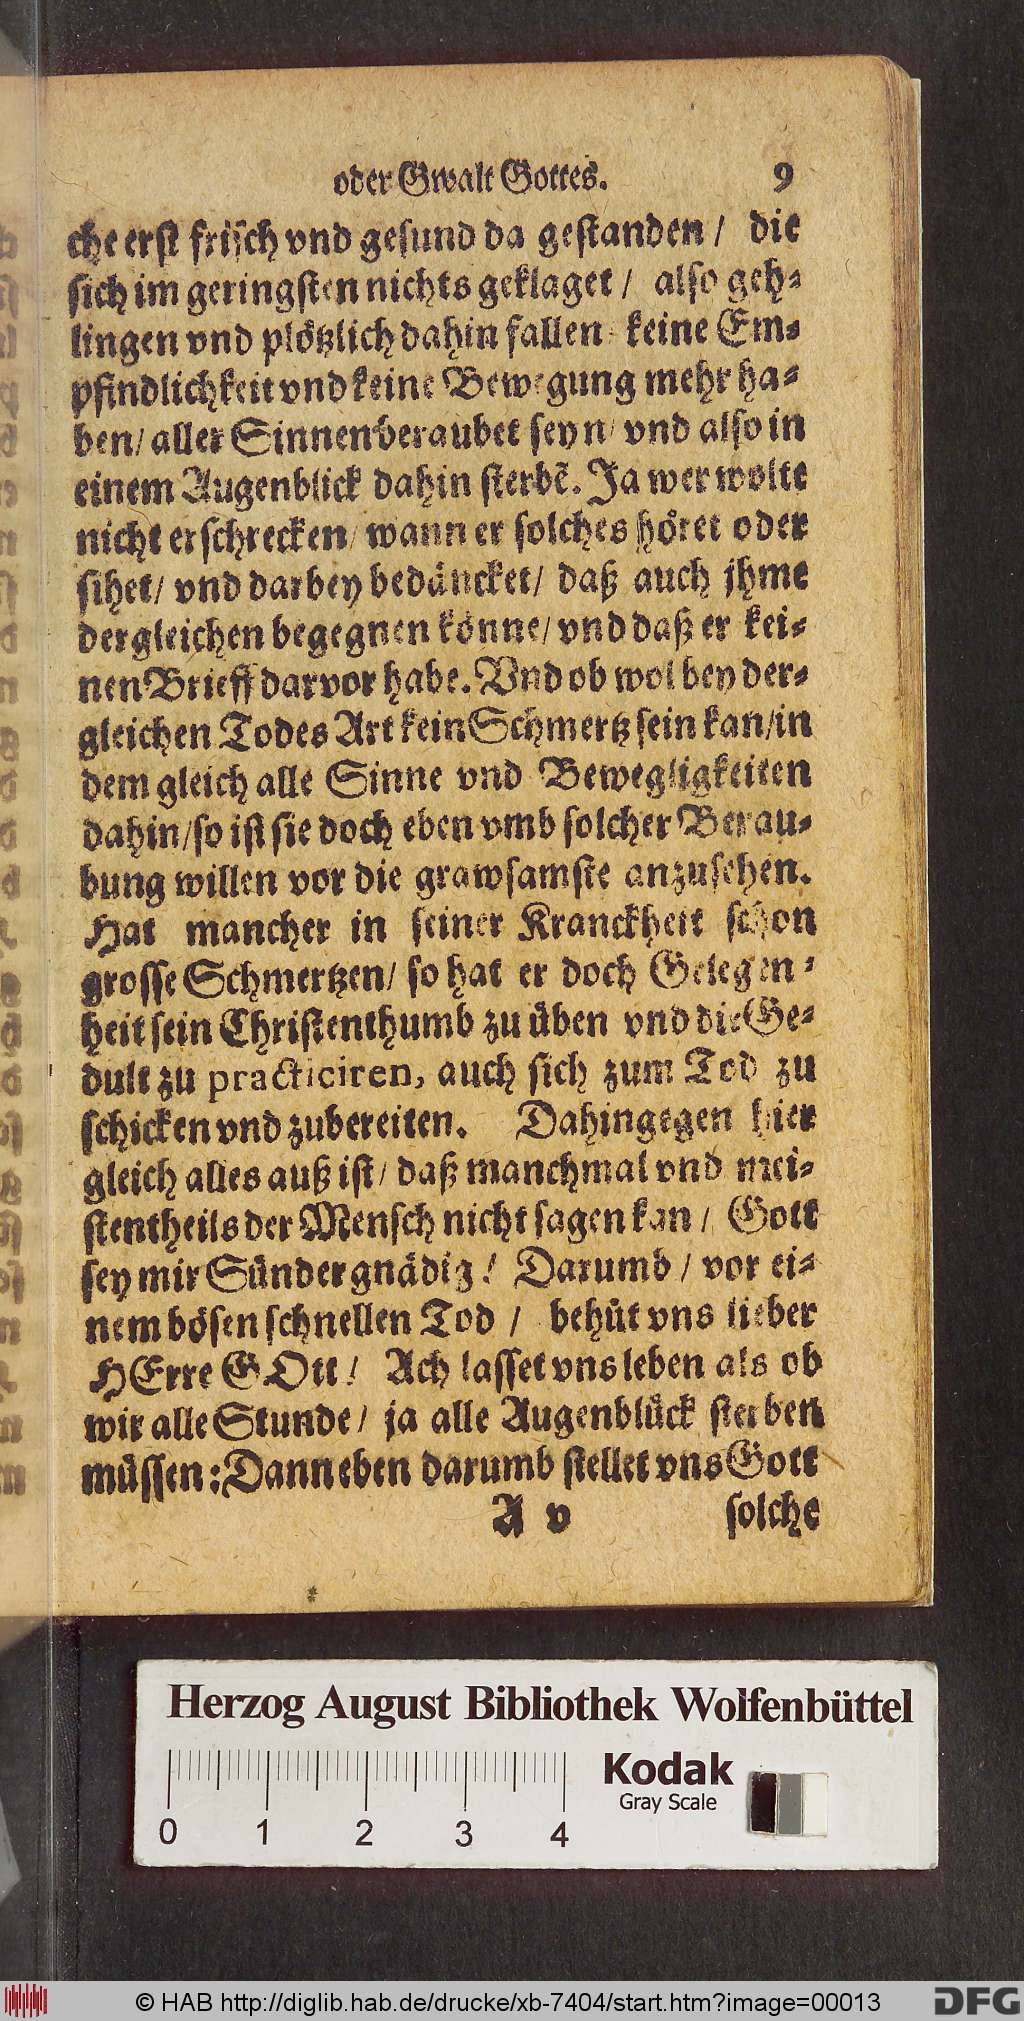 oder Gwalt Gottes. 9
che erst frisch vnd gesund da gestanden / die
sich im geringsten nichts geklaget / also geh-
lingen vnd plötzlich dahin fallen / keine Em-
pfindlichkeit vnd keine Bewegung mehr ha-
ben / aller Sinnen beraubet seyn / vnd also in
einem Augenblick dahin sterbẽ. Ja wer wolte
nicht erschrecken / wann er solches höret oder
sihet / vnd darbey bedäncket / daß auch jhme
dergleichen begegnen könne / vnd daß er kei-
nen Brieff darvor habe. Vnd ob wol bey der-
gleichen Todes Art kein Schmertz sein kan / in
dem gleich alle Sinne vnd Bewegligkeiten
dahin / so ist sie doch eben vmb solcher Berau-
bung willen vor die grawsamste anzusehen.
Hat mancher in seiner Kranckheit schon
grosse Schmertzen / so hat er doch Gelegen-
heit sein Christenthumb zu üben vnd die Ge-
dult zu practiciren, auch sich zum Tod zu
schicken vnd zubereiten. Dahingegen hier
gleich alles auß ist / daß manchmal vnd mei-
stentheils der Mensch nicht sagen kan / Gott
sey mir Sünder gnädig! Darumb / vor ei-
nem bösen schnellen Tod / behüt vns lieber
HErre GOtt! Ach lasset vns leben als ob
wir alle Stunde / ja alle Augenblück sterben
müssen: Dann eben darumb stellet vns Gott
A v solche
Herzog August Bibliothek Wolfenbüttel
Kodak
Gray Scale
0 1 2 3 4
© HAB http://diglib.hab.de/drucke/xb-7404/start.htm?image=00013 DFG